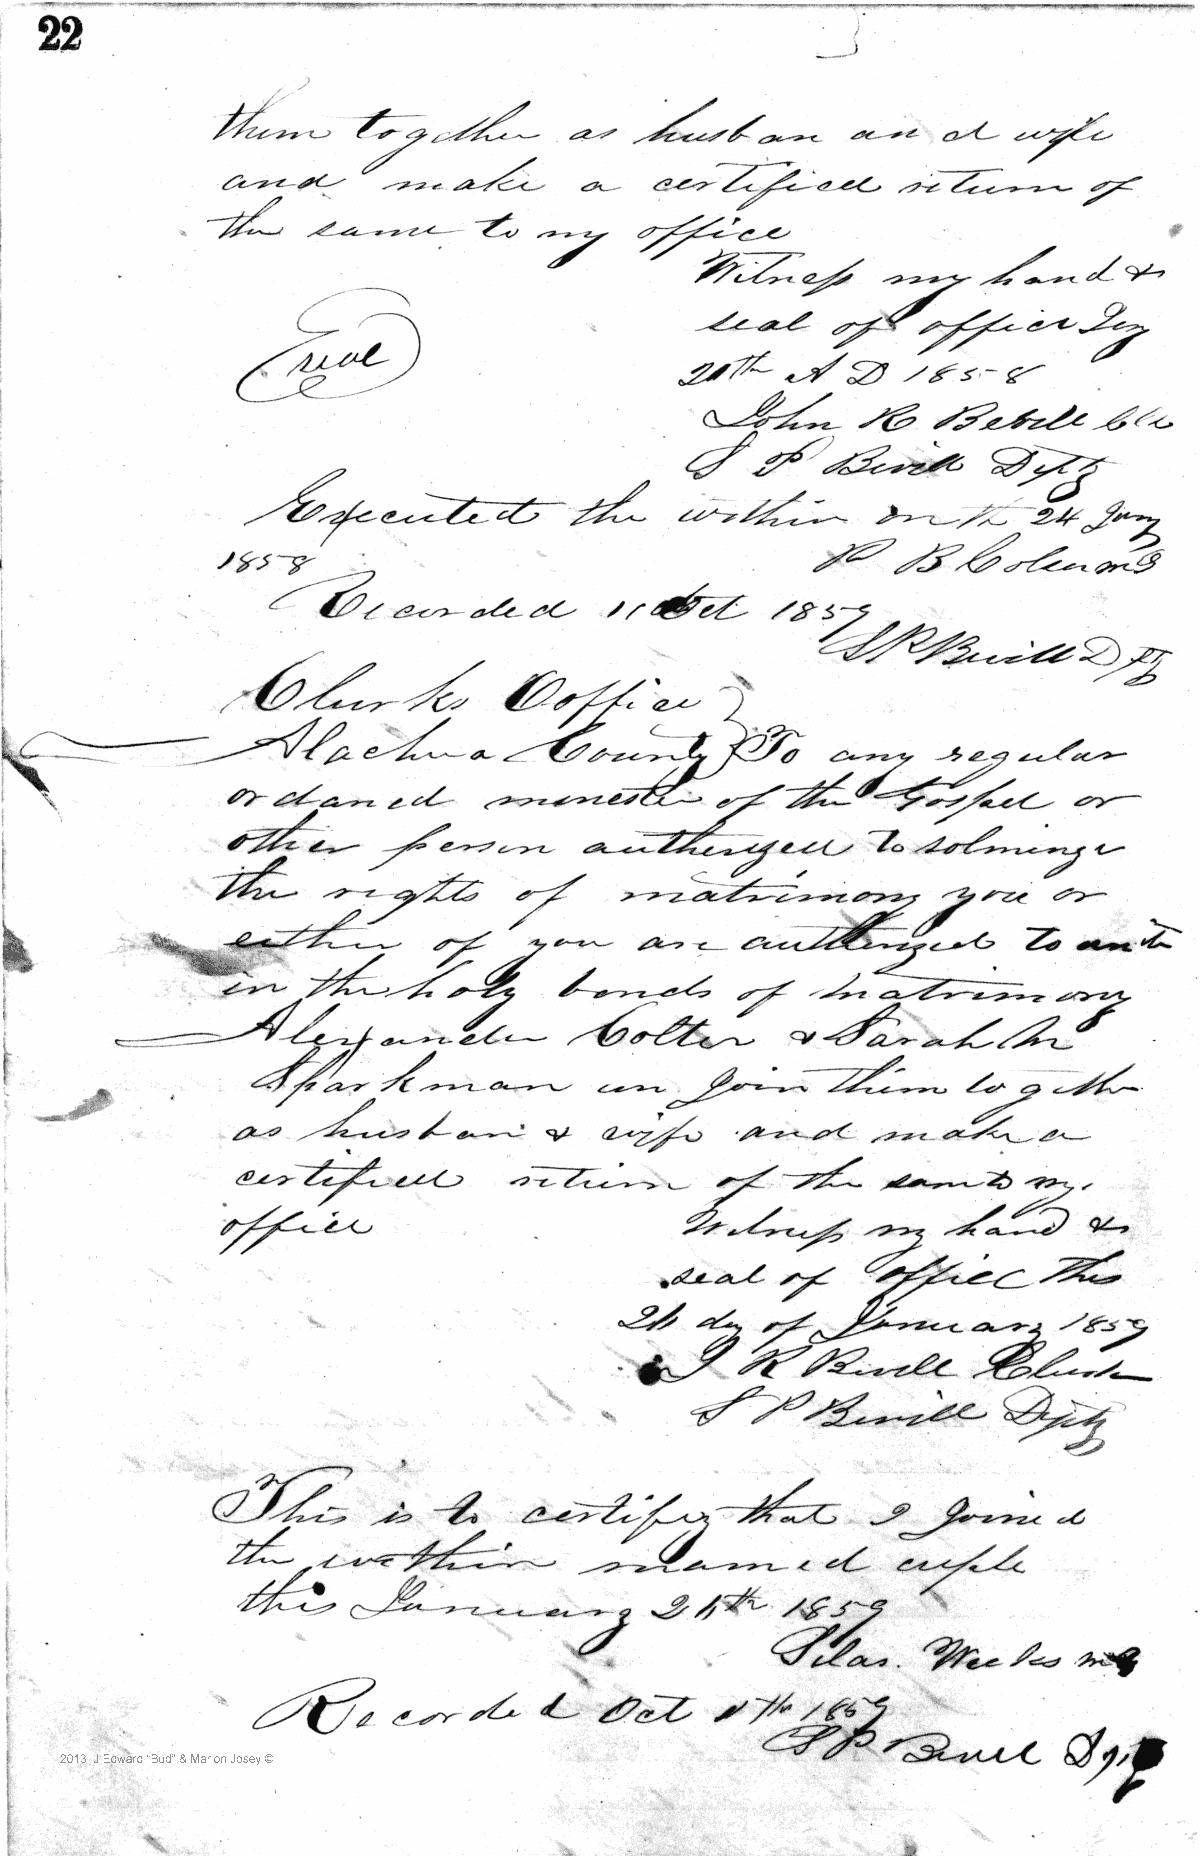 22
them together as husban and wife
and make a certified return of
the same to my office
Witness my hand &
seal of office
20th A D 1858
seal
John R Bevill Clk
S P Bevill Dpty
Executed the within on th 24 Jany
1858
P B Colson
Recorded 11 Oct 1859
S P Bevill Dpty
Clerks Ooffice
Alachua County } To any regular
ordaned minester of the Gospel or
other person autherized to solminize
the rights of matrimony you or
either of you are autherized to unite
in the holy bonds of matrimony
Alexander Colter & Sarah M
Sparkman un Join them together
as husban & wife and make a
certified return of the same to my
office
Witness my hand &
seal of office this
day of January 1859
J R Bevill Clerk
S P Bevill Dpty
This is to certify that I Joined
the within named cuple
this January 1859
Silas Weeks
Recorded Oct 11th 1859
S P Bevill Dpty
2013 J Edward "Bud" & Marion Josey ©